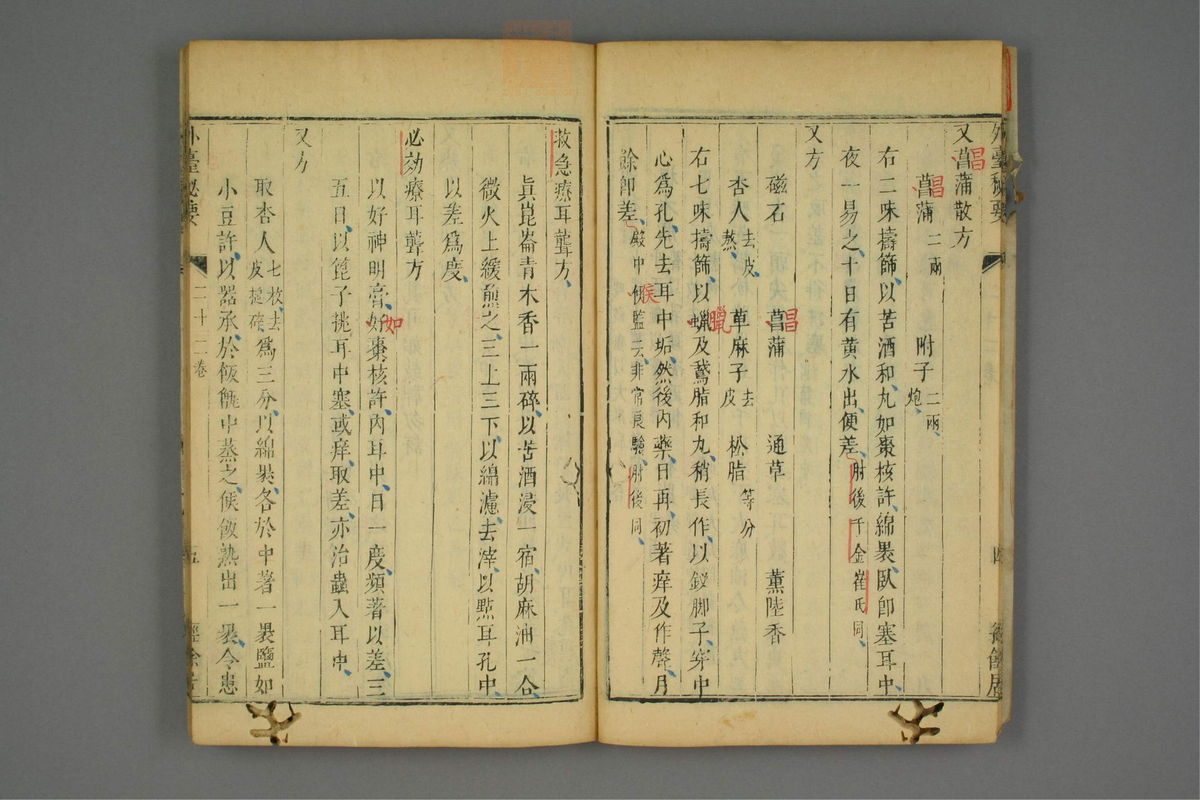 又菖蒲散方
昌
菖蒲二兩 附子二兩炮
昌
右二味擣篩以苦酒和丸如棗核許綿褁臥卽塞耳中
夜一易之十日有黄水出便差肘後千金崔氏同
又方
磁石 菖蒲 通草 薰陸香
昌
杏人去皮熬 萆麻子去皮 松脂等分
右七味擣篩以蝋及鵞脂和丸稍長作以釵脚子穿中
臘
心爲孔先去耳中垢然後内藥日再初著痒及作聲月
餘卽差殿中侯監云非常良驗肘後同
候
救急療耳聾方
眞崑崙青木香一兩碎以苦酒浸一宿胡麻油一合
微火上緩煎之三上三下以綿濾去滓以點耳孔中
以差爲度
必効療耳聾方
以好神明膏好棗核許内耳中日一度頻著以差三
如
五日以篦子挑耳中塞或痒取差亦治蟲入耳中
又方
取杏人七枚去皮搥碎爲三分以綿褁各於中著一褁鹽如
小豆許以器承於飯甑中蒸之候飯熟出一褁令患
二十二卷
五